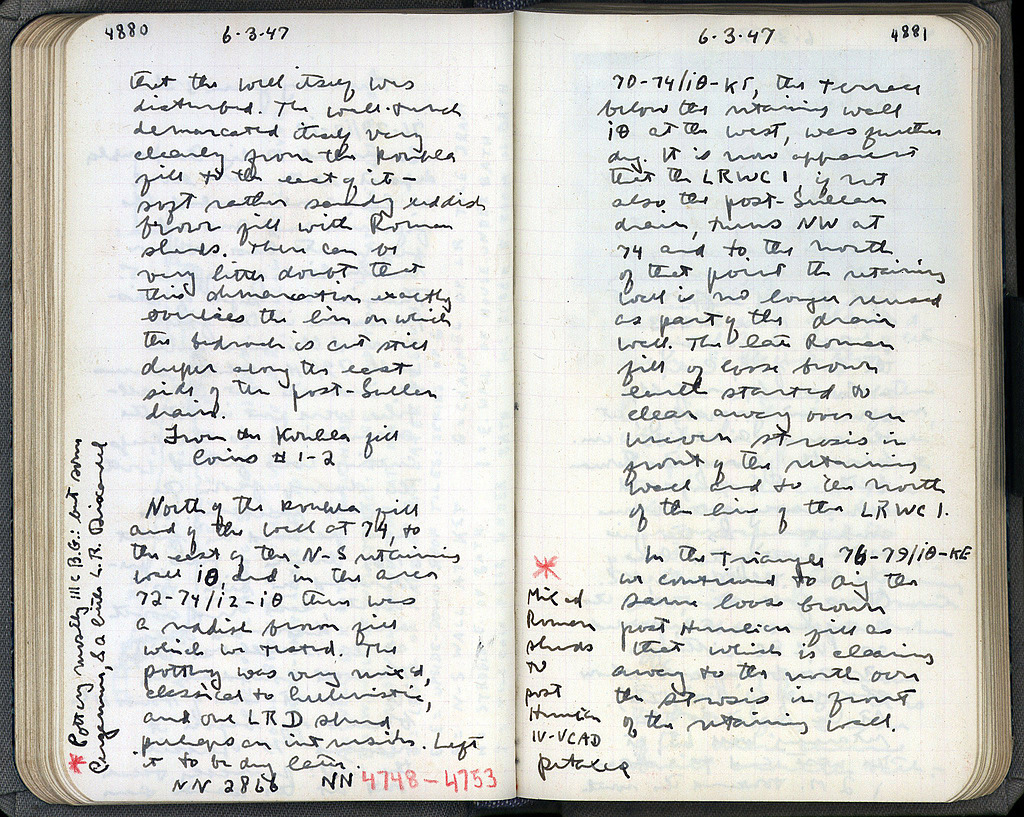 4880
6-3-47
that the well itself was
disturbed. The well-trench
demarcated itself very
clearly from the Koubla
fill to the east of it –
soft rather sandy reddish
brown fill with Roman
sherds. There can be
very little doubt that
this demarcation exactly
overlies the line on which
the bedrock is cut still
deeper along the east
side of the post-Sullan
drain.
From the Koubla fill
Coins #1-2
North of the Koubla fill
and of the wall at 74, to
the east of the N-S retaining
wall ιθ, and in the area
72-74/ιζ-ιθ there was
a reddish brown fill
which we tested. The
pottery was very mixed,
classical to hellenistic,
and one LRD sherd
perhaps an intrusion. Left
it to be dug later.
NN 2866 NN 4748-4753
* Pottery mostly III c B.C.: but some
Pergamene, & a little L.R. Discarded
6-3-47
4881
70-74/ιθ-ΚΓ, the terrace
below the retaining wall
ιθ at the west, was further
dug. It is now apparent
that the LRWC 1, if not
also the post-Sullan
drain, turns NW at
74 and to the north
of that point the retaining
wall is no longer reused
as part of the drain
wall. The late Roman
fill of loose brown
earth started to
clear away over an
uneven strosis in
front of the retaining
wall and to the north
of the line of the LRWC 1.
In the triangle 76-79/ιθ-ΚΕ
we continued to dig the
same loose brown
post Herulian fill as
that which is clearing
away to the north over
the strosis in front
of the retaining wall.
*
Mixed
Roman
sherds
to
post
Herulian
IV-V C AD